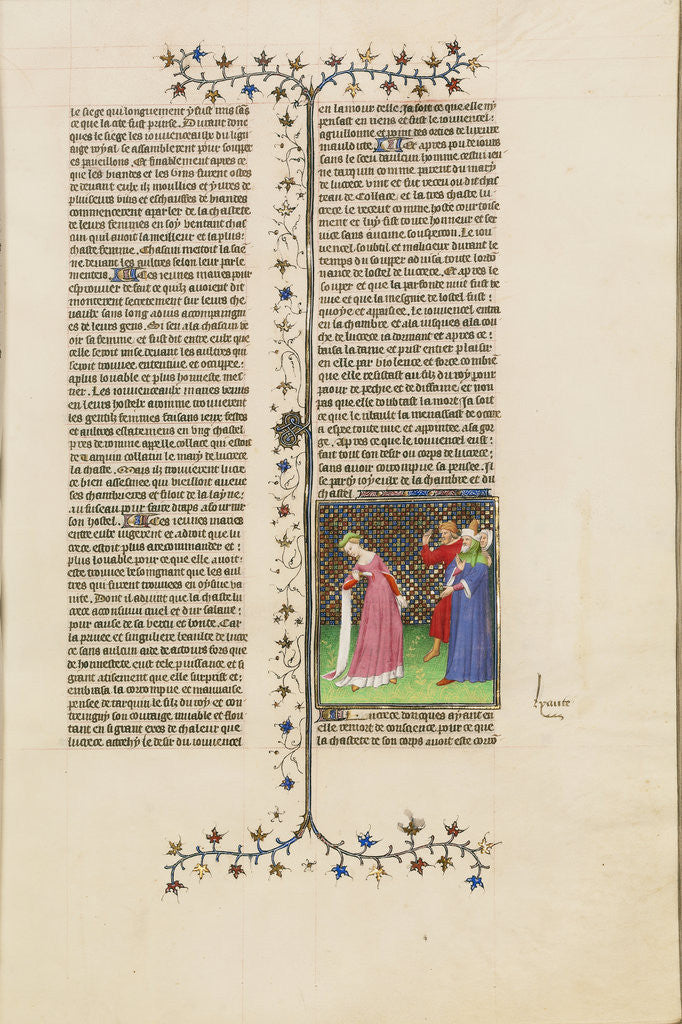 le siege qui longuement y fust mis sãs
ce que la cite fust prinse. Durant donc
ques le siege les iouuenceaulx du lign
aige royal se assemblerent pour soupper
es paueillons. Et finablement apres ce
que les viandes et les vins furent ostes
de deuant eulx ilz moullies et yures de
pluseurs vins et eschauffes de viandes
commencerent a parler de la chastete
de leurs femmes en soy ventant chas
cun quil auoit la meilleur et la plus
chaste femme. Chascun mettoit la sie
ne deuant les aultres selon leur parle
menters. Ces ieunes maries pour
esprouuer de fait ce quilz auoient dit
monterent secretement sur leurs che
uaulx sans long aduis acompaingni
es de leurs gens. Si sen ala chascun ve
oir sa femme, et fust dit entre eulx que
celle seroit mise deuant les aultres qui
seroit trouuee ententiue et occupee
a plus louable et plus honneste mes
tier. Les iouuenceaulx maries venus
en leurs hostelz a romme trouuerent
les gentilz femmes faisans ieux festes
et aultres esbatemens en ung chastel
pres de romme appelle collace qui estoit
de tarquin collatin le mary de lucrece
la chaste. Mais ilz trouuerent lucre
ce bien assesinee qui vieilloit auecue
ses chambrieres et filoit de la layne
au fuseau pour faire draps a fournir
son hostel. Ces ieunes maries
entre eulx iugerent et a droit que lu
crece estoit plus a recommander et
plus louable pour ce que elle auoit
este trouuee besoingnant que les aul
tres qui furent trouuees en oyseuse va
nite. Dont il aduint que la chaste lu
crece aconsuiui cruel et dur salaire
pour cause de sa vertu et bonte. Car
la priuee et singuliere beaulte de lucre
ce sans aulcun aide de actours fors que
de honnestete eust tele puissance et si
grant atisement que elle surprist et
embrasa la corrompue et mauuaise
pensee de tarquin le filz du roy et con
treingny son couraige muable et flou
tant en si grant exces de chaleur que
lucrece acreshy le desir du iouuencel
en lamour delle. Ja soit ce que elle ny
pensast en riens et fust le iouuencel
aguillonne et point des orties de luxure
mauldite. Et apres pou de iours
sans le sceu daulcun homme cestui ieu
ne tarquin comme parent du mary
de lucrece vint et fut receu ou dit chas
teau de Collace, et la tres chaste lu
crece le receut comme hoste courtoise
ment et luy fist toute honneur et ser
uice sans aucune souspecon. Le iou
uencel soubtil et malicieux durant le
temps du soupper aduisa toute lordo
nance de lostel de lucrece. Et apres le
souper et que la parfonde nuit fust ve
nue et que la mesgnie de lostel fust
quoye et appaisee. Le iouuencel entra
en la chambre et ala iusques a la cou
che de lucrece ia dormant et apres ce
baisa la dame et prist entier plaisir
en elle par violence et force combiē
que elle resistast au filz du roy pour
paour de pechie et de diffame, et non
pas que elle doubtast la mort. Ja soit
ce que le ribault la menassast de occire
a espee toute nue et appointee a sa gor
ge. Apres ce que le iouuencel eust
fait tout son desir ou corps de lucrece
sans auoir corrompue sa pensee. Il
se party ioyeux de la chambre et du
chastel
Lucrece doncques ayant en
elle remort de conscience pour ce que
la chastete de son corps auoit este corro